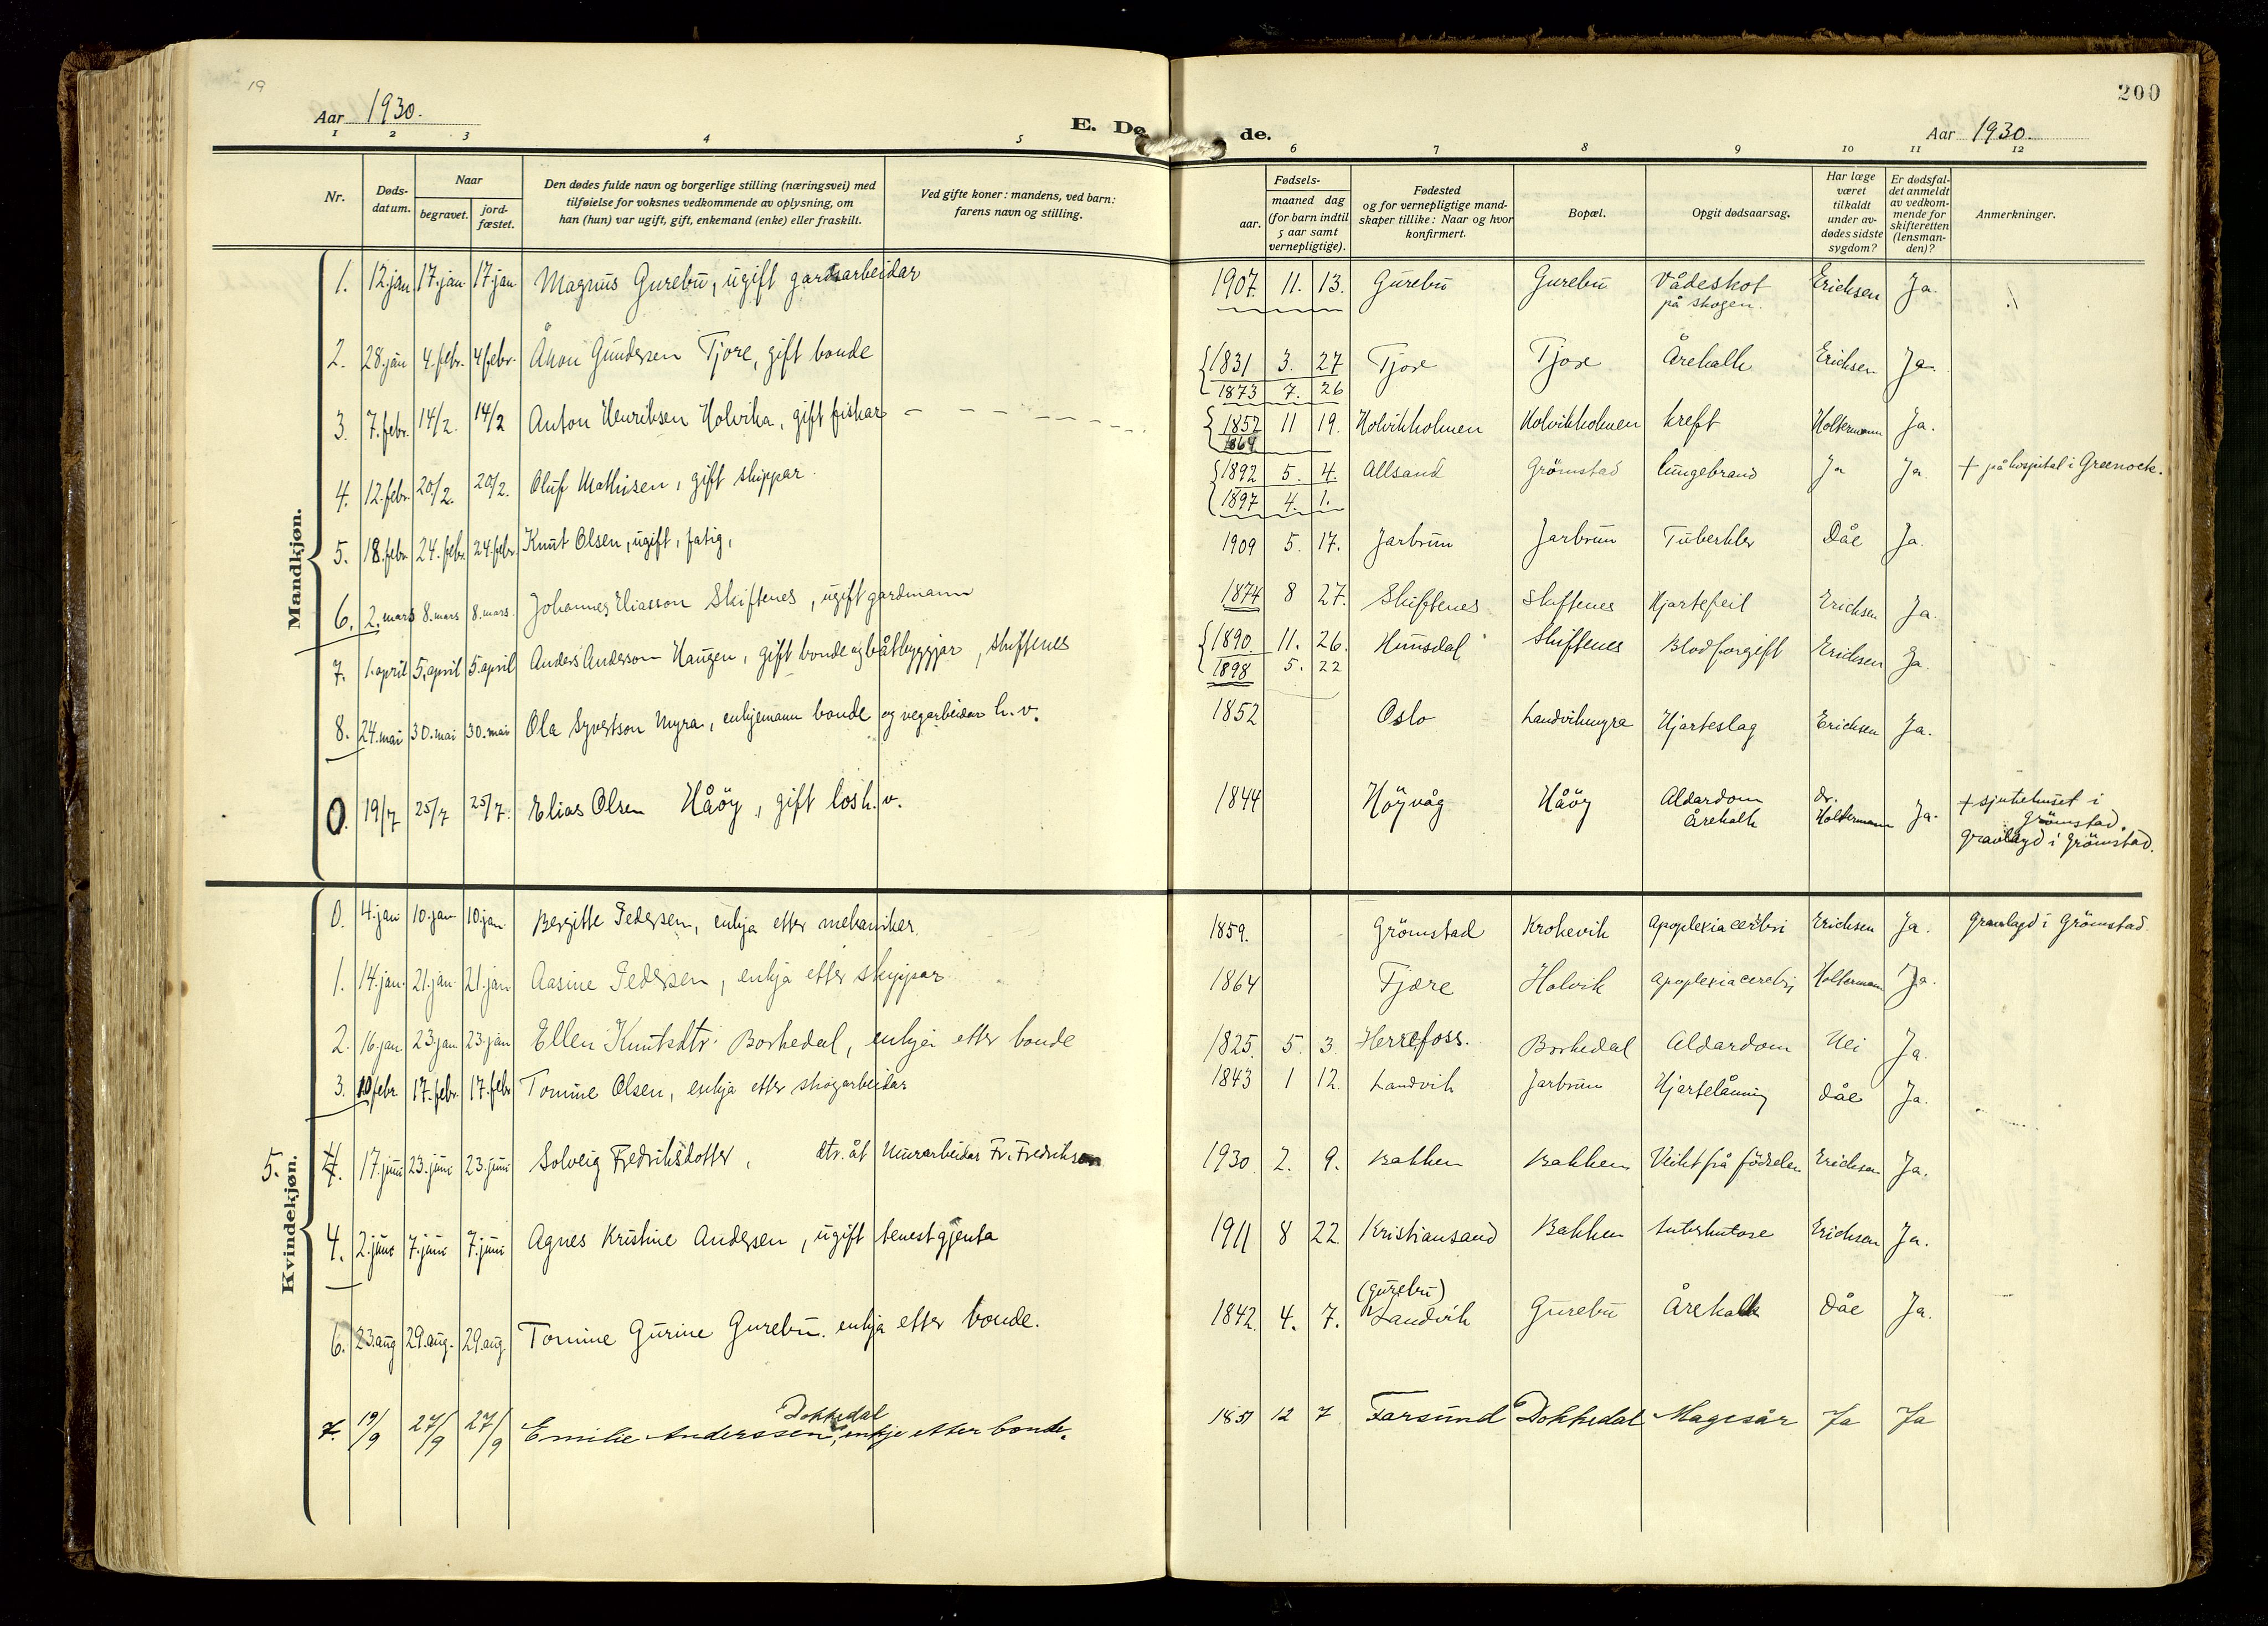 19
Aar 1930.
E. Dø de.
Aar 1930.
200
1 2 3 4 5 6 7 8 9 10 11 12
Nr.
Døds-
datum.
Naar
begravet.
jord-
fæstet.
Den dødes fulde navn og borgerlige stilling (næringsvei) med
tilføielse for voksnes vedkommende av oplysning, om
han (hun) var ugift, gift, enkemand (enke) eller fraskilt.
Ved gifte koner: mandens, ved barn:
farens navn og stilling.
Fødsels-
aar.
maaned dag
(for barn indtil
5 aar samt
vernepligtige).
Fødested
og for vernepligtige mand-
skaper tillike: Naar og hvor
konfirmert.
Bopæl.
Opgit dødsaarsag.
Har læge
været
tilkaldt
under av-
dødes sidste
sygdom?
Er dødsfal-
det anmeldt
av vedkom-
mende for
skifteretten
(lensman-
den)?
Anmerkninger.
Mandkjøn.
1. 12. jan 17. jan 17. jan Magnus Gurebu, ugift gardsarbeidar 1907. 11. 13. Gurebu Gurebu Vådeskot Erichsen Ja.
på skogen.
2. 28. jan 4. febr. 4 febr. Ånon Gundersen Tjore, gift bonde 1831 3. 27 Tjore Tjore Årekalk Erichsen Ja
1873 7. 26
3. 7. febr. 14/2. 14/2 Anton Henriksen Holvika, gift fiskar 1852 11 19. Holvikholmen Holvikholmen kreft Holtermann Ja.
1864
4. 12. febr. 20/2. 20/2. Oluf Mathisen, gift skippar. 1892 5. 4. Allsand Grömstad lungebrand Ja Ja + på hospital i Greenock.
1897 4. 1.
5. 18. febr. 24. febr. 24. febr. Knut Olsen, ugift, fatig, 1909 5. 17. Jarbrun Jarbrun Tuberkler Dåe Ja.
6. 2. mars 8. mars 8. mars. Johannes Eliasson Skiftenes, ugift gardmann 1874 8 27. Skiftenes Skiftenes Hjartefeil Erichsen Ja.
7. 1. april 5. april 5. april Anders Anderson Haugen, gift bonde og båtbyggjar, Skiftenes 1890. 11. 26. Humsdal Skiftenes Blodforgift Erichsen Ja.
1898 5. 22
8. 24. mai 30. mai 30. mai Ola Syvertson Myra, enkjemann bonde og vegarbeidar h. v. 1852 Oslo Landvikmyra Hjarteslag Erichsen Ja.
0. 19/7 25/7 25/7. Elias Olsen Håöy, gift los h. v. 1844 Höyvåg Håöy Aldardom dr. Ja. + sjukehuset i
Årekalk Holtermann Grömstad.
Gravlagd i Grömstad.
Kvindekjøn.
0. 4. jan 10. jan 10. jan. Bergitte Pedersen, enkja etter mekaniker. 1859. Grömstad Krokevik Apoplexia cerebri Erichsen Ja. Gravlagd i Grömstad.
1. 14. jan. 21. jan 21. jan Aasine Pedersen, enkja etter skippar 1864 Fjære Holvik Apoplexia cerebri Holtermann Ja.
2. 16. jan 23. jan 23. jan Ellen Knutsdtr. Borkedal, enkja etter bonde 1825. 5. 3. Herrefoss. Borkedal Aldardom Nei Ja.
3. 10 febr 17. febr. 17. febr Tomine Olsen, enkja etter skogarbeidar 1843 1 12. Landvik Jarbrun Hjartelåming Dåe Ja.
5. 4. 17. juni 23. juni 23. juni Solveig Fredriksdotter, dtr. åt Murarbeidar Fr. Fredrikson 1930. 2. 9. Bakken Bakken Veikt frå födselen Erichsen Ja.
4. 2. juni 7. juni 7. juni Agnes Kristine Andersen, ugift tenestgjenta 1911 8 22. Kristiansand Bakken tuberkulose Erichsen Ja.
(Gurebu)
6. 23. aug 29. aug. 29. aug. Tomine Gurine Gurebu. enkja etter bonde. 1842. 4. 7. Landvik Gurebu Årekalk Dåe Ja.
Dokkedal
7. 19/9 27/9 27/9 Emilie Anderssen, enkje etter bonde. 1851 12 7 Farsund Dokkedal Magesår Ja Ja